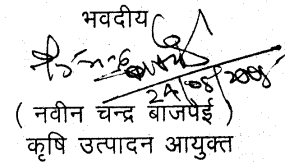 भवदीय
24/08/2008
( नवीन चन्द्र बाजपेई )
कृषि उत्पादन आयुक्त